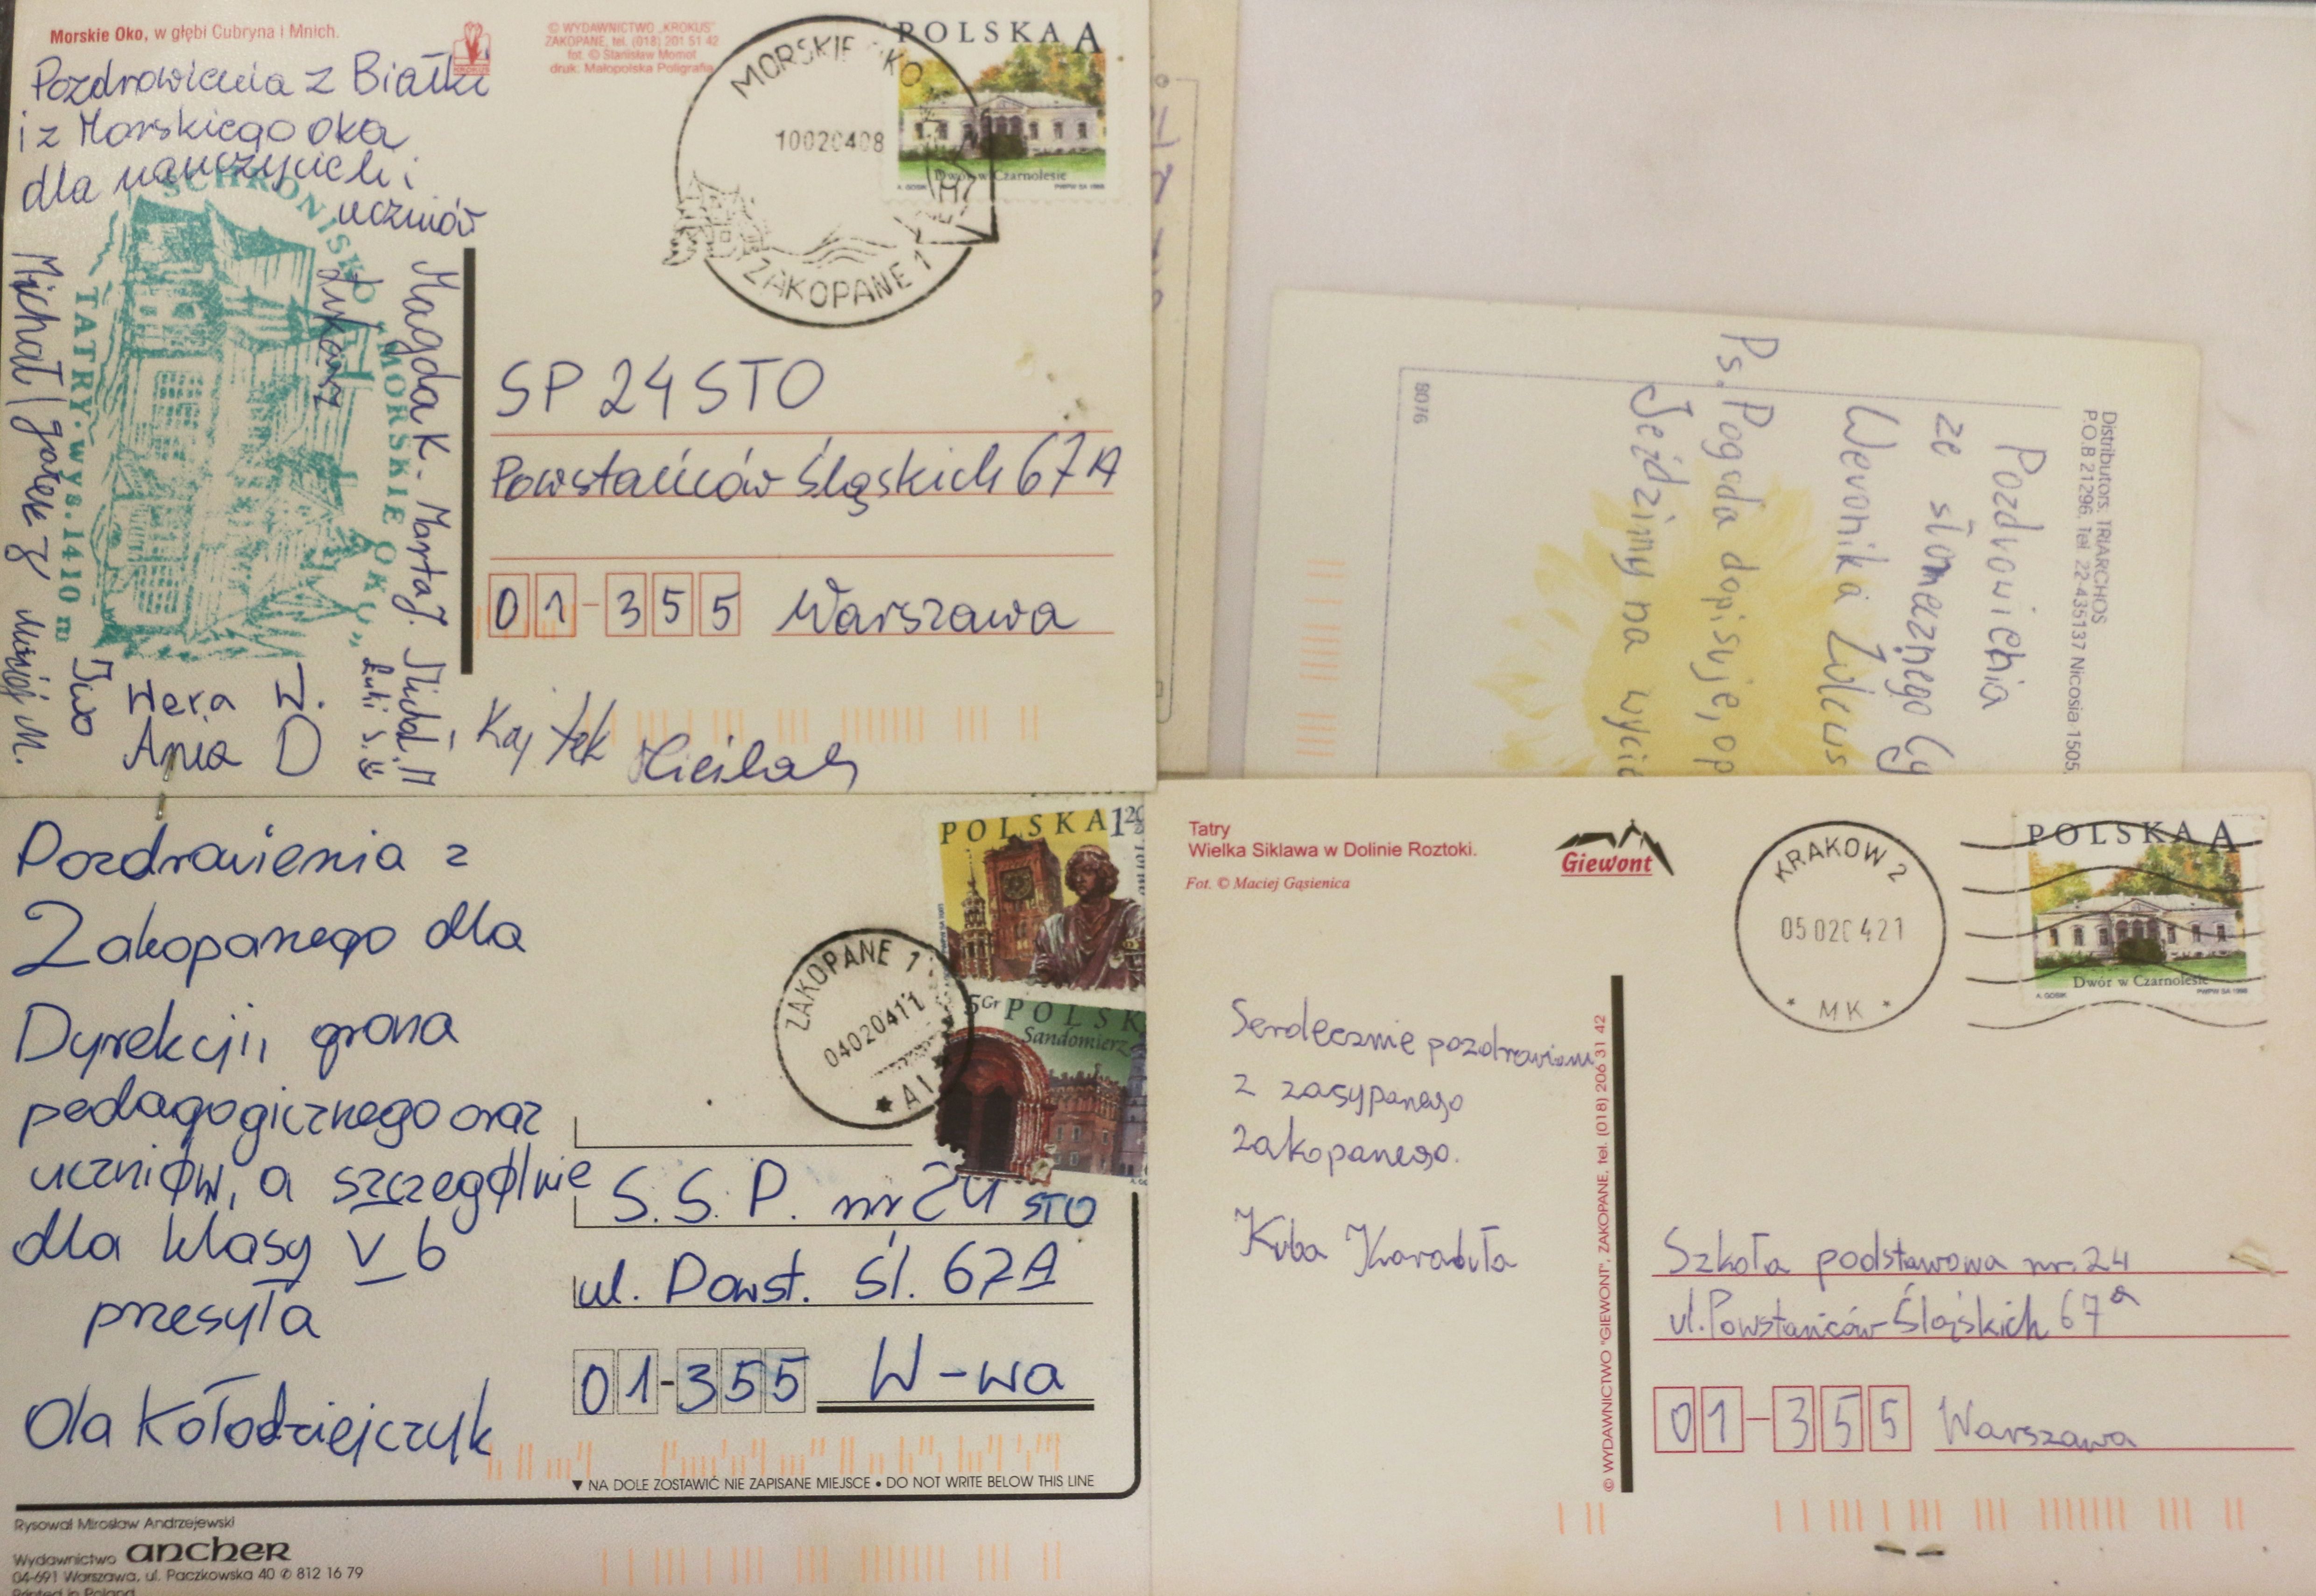 Morskie Oko, w głębi Cubryna i Mnich.
© WYDAWNICTWO „KROKUS"
ZAKOPANE, tel. (018) 201 51 42
fot. © Stanisław Momot
druk: Małopolska Poligrafia
Pozdrowienia z Białki
i z Morskiego oka
dla nauczycieli i
uczniów
SCHRONISKO „MORSKIE OKO"
TATRY. wys. 1410 m
Magda K. Marta J.
Łukasz
Michał
Iwo
Wera W.
Ania D
Michał M
Łuki S.
Kajtek
MORSKIE OKO
10020408
ZAKOPANE 1
POLSKA A
Dwór w Czarnolesie
SP 24 STO
Powstańców Śląskich 67A
01-355 Warszawa
Distributors. TRIARCHOS
P.O.B 21296, Tel. 22-435137 Nicosia 1505,
Pozdrowienia
ze słonecznego Cy
Weronika
Ps. Pogoda dopisuje, op
Jeździmy na wyci
9076
Pozdrowienia z
Zakopanego dla
Dyrekcji, grona
pedagogicznego oraz
uczniów, a szczególnie
dla klasy V b
przesyła
Ola Kołodziejczyk
POLSKA 1 20
5 Gr POLSK
Sandomierz
ZAKOPANE 1
04020411
A1
S.S.P. nr 24 STO
ul. Powst. Śl. 67A
01-355 W-wa
▼ NA DOLE ZOSTAWIĆ NIE ZAPISANE MIEJSCE • DO NOT WRITE BELOW THIS LINE
Rysował Mirosław Andrzejewski
Wydawnictwo ancher
04-691 Warszawa, ul. Paczkowska 40 ✆ 812 16 79
Printed in Poland
Tatry
Wielka Siklawa w Dolinie Roztoki.
Fot. © Maciej Gąsienica
Giewont
KRAKOW 2
05020421
* MK *
POLSKA A
Dwór w Czarnolesie
Serdecznie pozdrawiam
z zasypanego
Zakopanego.
Kuba Karabuła
© WYDAWNICTWO "GIEWONT", ZAKOPANE, tel. (018) 206 31 42
Szkoła podstawowa nr. 24
ul. Powstańców Śląskich 67a
01-355 Warszawa